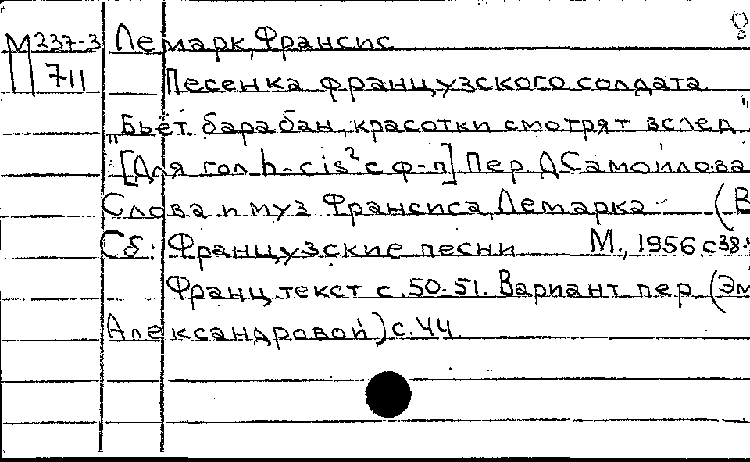 М237-3 Лемарк, Франсис
711 Песенка французского солдата.
"Бьёт барабан, красотки смотрят вслед"
[Для гол h-cis² с ф-п] Пер. Д Самойлова
Слова и муз Франсиса Лемарка (В
Сб: Французские песни М., 1956 с 38
Франц. текст с. 50-51. Вариант пер (Эм
Александровой) с. 44.